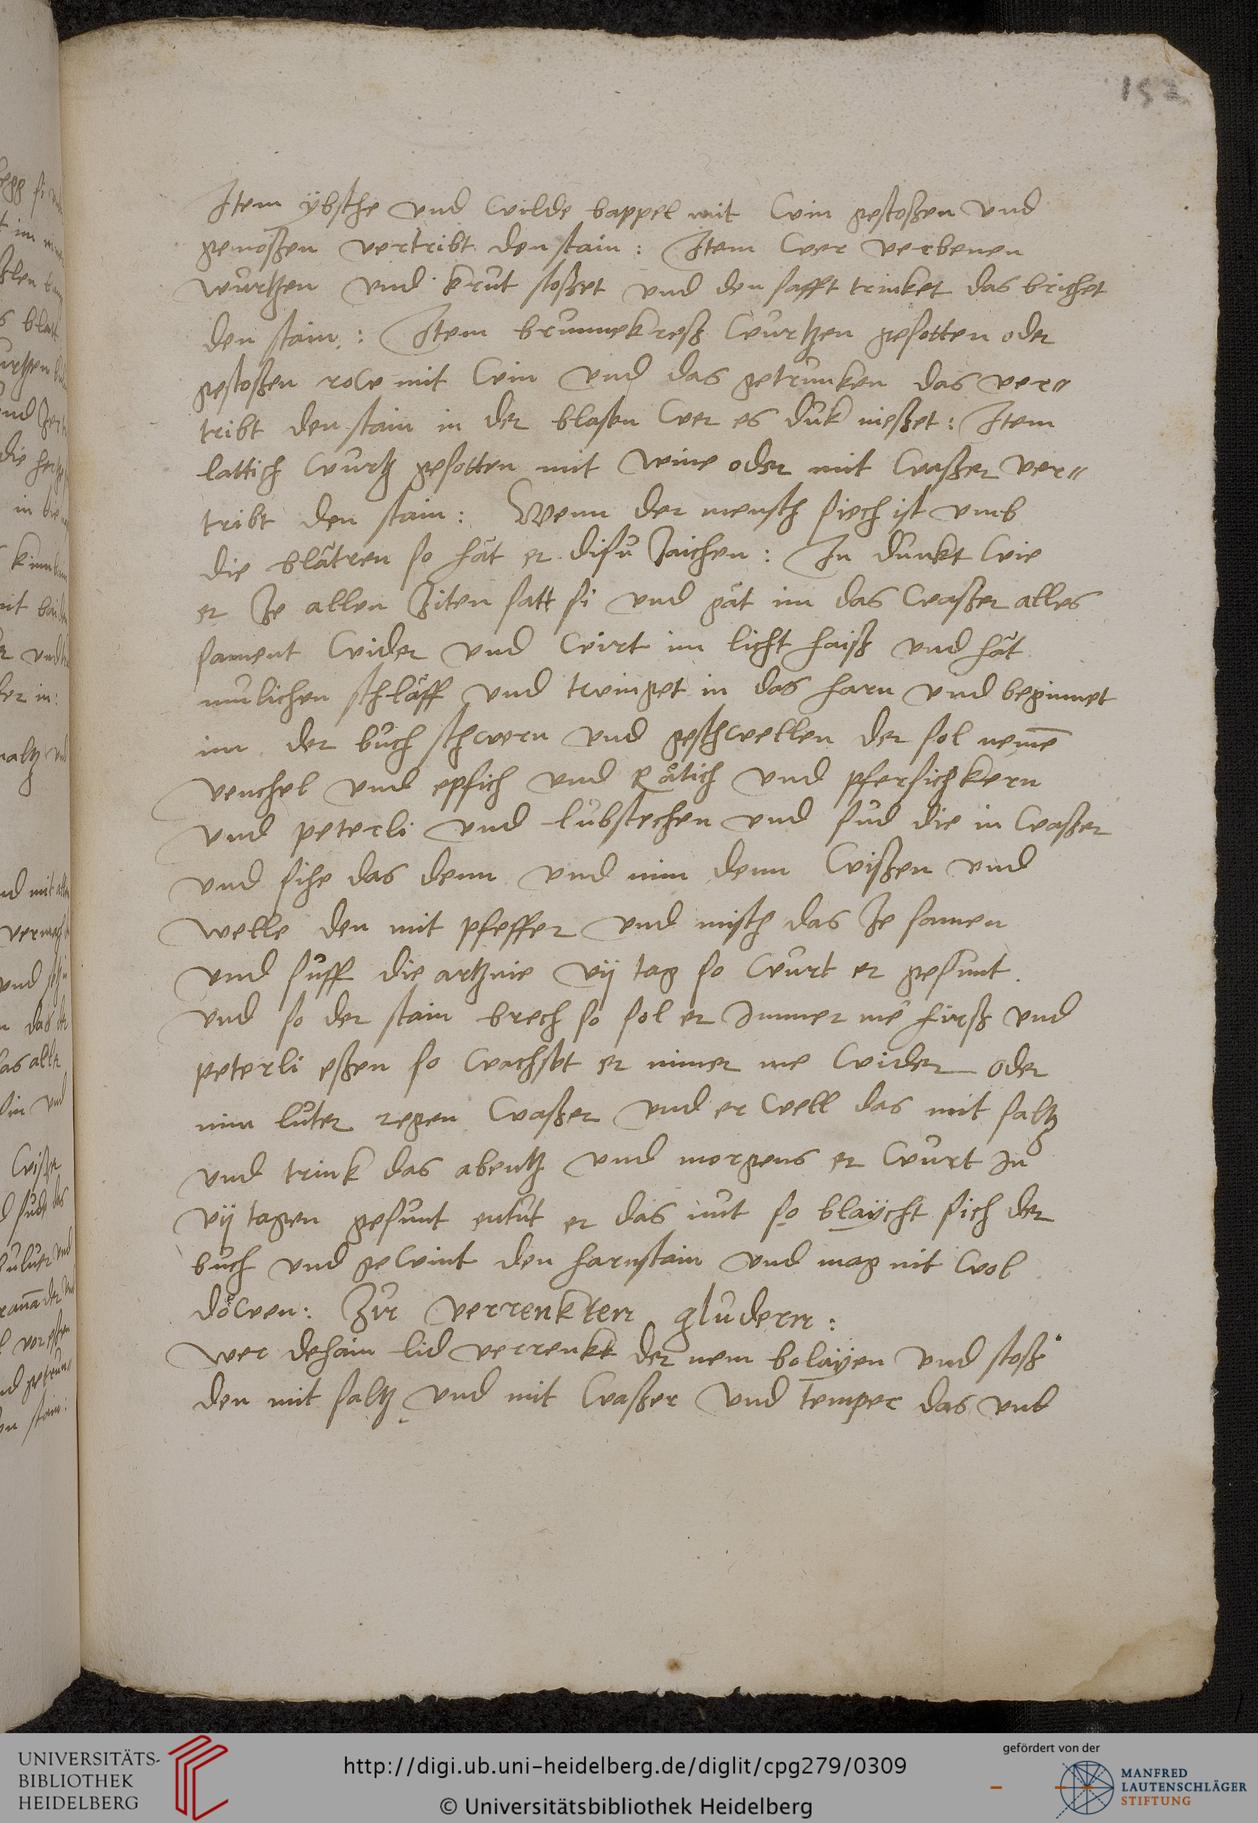 152
Item ÿbsche vnd wilde bappel mit win gestoßen vnd
genoßen vertribt den stain : Item wer verbenen
wurtzen vnd krut stoßet vnd den safft trinket das brichet
den stain : Item brunnekreß wurtzen gesotten oder
gestoßen row mit win vnd das getrunken das ver„
tribt den stain in der blasen wer es dik nießet : Item
lattich wurtz gesotten mit wine oder mit waßer ver„
tribt den stain : Wenn der mensch siech ist vmb
die blâtren so hât er disu zaichen : In dunkt wie
er ze allen ziten satt si vnd gât im das waßer alles
sament wider vnd wirt im licht haiß vnd hât
mulichen schlâff vnd twinget in das harn vnd beginnet
im der buch schwern vnd geschwellen der sol neme
venchel vnd epfich vnd Râtich vnd pfersichkern
vnd peterli vnd lubstechen vnd sud die in waßer
vnd sihe das denn vnd nim denn wißen vnd
welle den mit pfeffer vnd misch das ze samen
vnd suff die artznie vij tag so wurt er gesunt .
vnd so der stain brech so sol er immer me hirß vnd
peterli eßen so wachset er nimer me wider oder
nim luter regen waßer vnd er well das mit saltz
vnd trink das abentz vnd morgens er wurt in
vij tagen gesunt entut er das nut so blaÿcht sich der
buch vnd gewint den harnstain vnd mag nit wol
döwen : Zu verrenkten gludern :
Wer dehain lid verrenkt der nem bolaÿen vnd stoß
den mit saltz vnd mit waßer vnd temper das vnd
UNIVERSITÄTS-
BIBLIOTHEK
HEIDELBERG
http://digi.ub.uni-heidelberg.de/diglit/cpg279/0309
© Universitätsbibliothek Heidelberg
gefördert von der
MANFRED
LAUTENSCHLÄGER
STIFTUNG